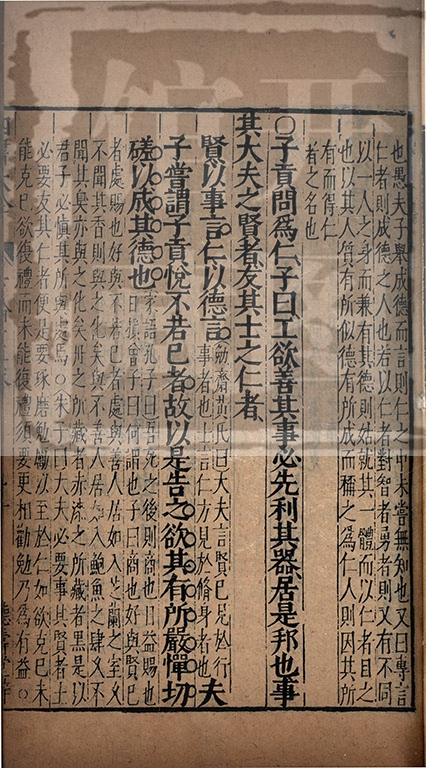 也愚夫子舉成德而言則仁之中未嘗無知也又曰專言
仁者則成德之人也若以仁者對智者勇者則又有不同
以一人之身而兼有其德則姑就其一體而以仁者目之
也以其人質有所似德有所成而稱之為仁人則因其所
有而得仁
者之名也
〇子貢問爲仁子曰工欲善其事必先利其器居是邦也事
其大夫之賢者友其士之仁者
賢以事言仁以德言
勉齋黃氏曰大夫言賢已見於行
事者也士言仁方見於脩身者也
夫
子嘗謂子貢悅不若己者故以是告之欲其有所嚴憚切
磋以成其德也
家語孔子曰吾死之後則商也日益賜也
日損曾子曰何謂也子曰商也好與賢己
者處賜也好與不若己者處與善人居如入芝蘭之室久
不聞其香則與之化矣與不善人居如入鮑魚之肆久不
聞其臭亦與之化矣丹之所藏者赤漆之所藏者黑是以
君子必慎其所與處焉〇朱子曰大夫必要事其賢者士
必要友其仁者便是要琢磨勉勵以至於仁如欲克己未
能克己欲復禮而未能復禮須要更相勸勉乃爲有益〇